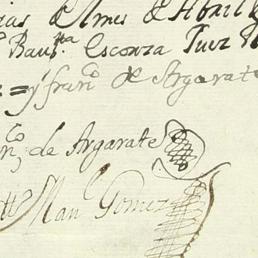 dias de Mes de Abril
Bau.ta Esconza Juez
= y fran.co de Argarate
de Argarate
Man.l Gomez